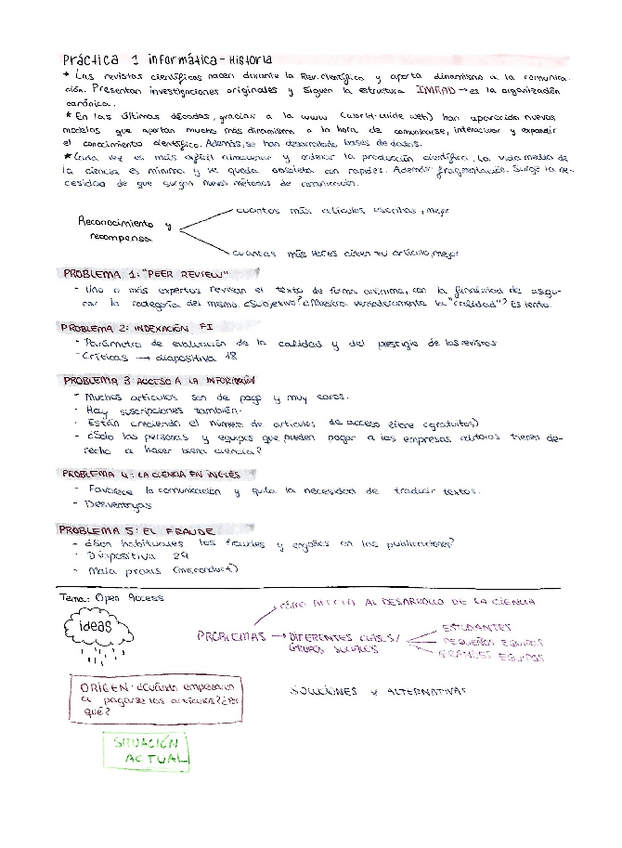 Práctica 1 informática - Historia
* Las revistas científicas nacen durante la Rev. Científica y aporta dinamismo a la comunica-
ción. Presentan investigaciones originales y siguen la estructura IMRAD → es la organización
canónica.
* En las últimas décadas, gracias a la www (world-wide web) han aparecido nuevos
modelos que aportan mucho más dinamismo a la hora de comunicarse, interactuar y expandir
el conocimiento científico. Además, se han desarrollado bases de datos.
* Cada vez es más difícil almacenar y ordenar la producción científica. La vida media de
la ciencia es mínima y se queda obsoleta con rapidez. Además fragmentación. Surge la ne-
cesidad de que surjan nuevos métodos de comunicación.
cuantos más artículos escribas, mejor
Reconocimiento y
recompensa
cuantas más veces citen tu artículo, mejor
PROBLEMA 1: "PEER REVIEW"
- Uno o más expertos revisan el texto de forma anónima, con la finalidad de asegu-
rar la categoría del mismo. ¿Subjetivo? ¿Muestra verdaderamente la "calidad"? Es lento.
PROBLEMA 2: INDEXACIÓN FI
- Parámetro de evaluación de la calidad y del prestigio de las revistas
- Críticas → diapositiva 18
PROBLEMA 3: ACCESO A LA INFORMACIÓN
- Muchos artículos son de pago y muy caros.
- Hay suscripciones también.
- Están creciendo el número de artículos de acceso libre (gratuitos)
- ¿Sólo las personas y equipos que pueden pagar a las empresas editoras tienen de-
recho a hacer buena ciencia?
PROBLEMA 4: LA CIENCIA EN INGLÉS
- Favorece la comunicación y quita la necesidad de traducir textos.
- Desventajas
PROBLEMA 5: EL FRAUDE
- ¿Son habituales los fraudes y engaños en las publicaciones?
- Diapositiva 29
- Mala praxis (misconduct)
Tema: Open Access
ideas
CÓMO AFECTA AL DESARROLLO DE LA CIENCIA
PROBLEMAS → DIFERENTES CLASES/
GRUPOS SOCIALES
ESTUDIANTES
PEQUEÑOS EQUIPOS
GRANDES EQUIPOS
ORIGEN: ¿Cuándo empezaron
a pagarse los artículos? ¿Por
qué?
SOLUCIONES Y ALTERNATIVAS
SITUACIÓN
ACTUAL